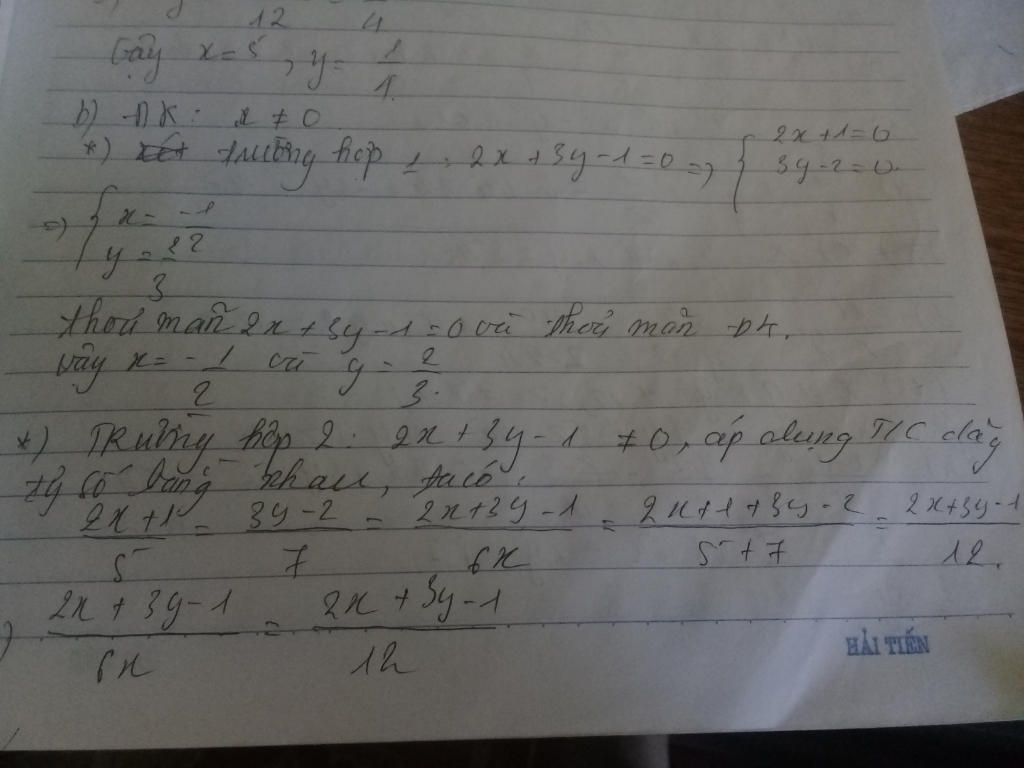 12 4
Vậy x = 5, y = 1/1
b) ĐK: x ≠ 0
*) trường hợp 1: 2x + 3y - 1 = 0 => { 2x + 1 = 0
3y - 2 = 0.
=> { x = -1/2
y = 2/3
thoả mãn 2x + 3y - 1 = 0 và thoả mãn ĐK.
vậy x = -1/2 và y = 2/3.
*) TRường hợp 2: 2x + 3y - 1 ≠ 0, áp dụng T/C dãy
tỷ số bằng nhau, ta có:
(2x + 1)/5 = (3y - 2)/7 = (2x + 3y - 1)/6x = (2x + 1 + 3y - 2)/(5 + 7) = (2x + 3y - 1)/12.
(2x + 3y - 1)/6x = (2x + 3y - 1)/12
HẢI TIẾN